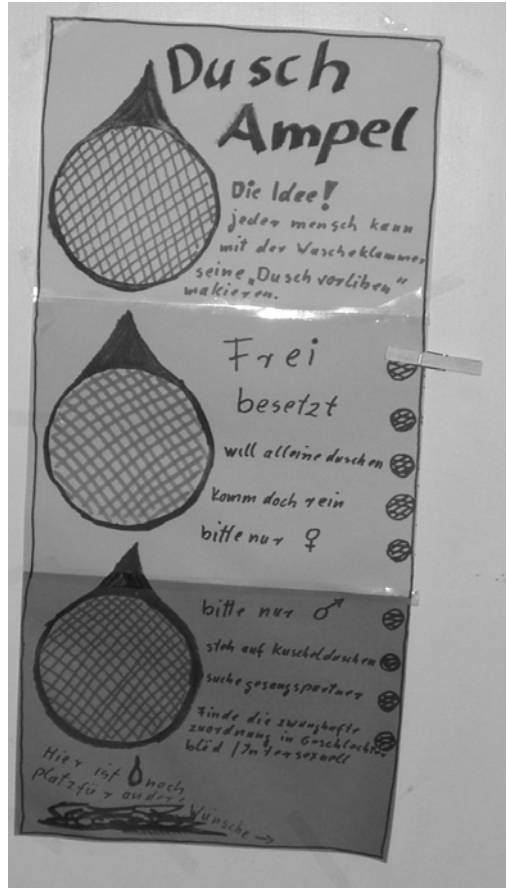 Dusch
Ampel
Die Idee!
jeder mensch kann
mit der Wascheklammer
seine „Dusch vorlihen“
makieren.
Frei
besetzt
will alleine duschen
komm doch rein
bitte nur ♀
bitte nur ♂
steh auf Kuschelduschen
suche gesangspartner
Finde die zwanghafte
zuordnung in Geschlechter
blöd / Intersexuell
Hier ist noch
platz für andere
Wünsche →